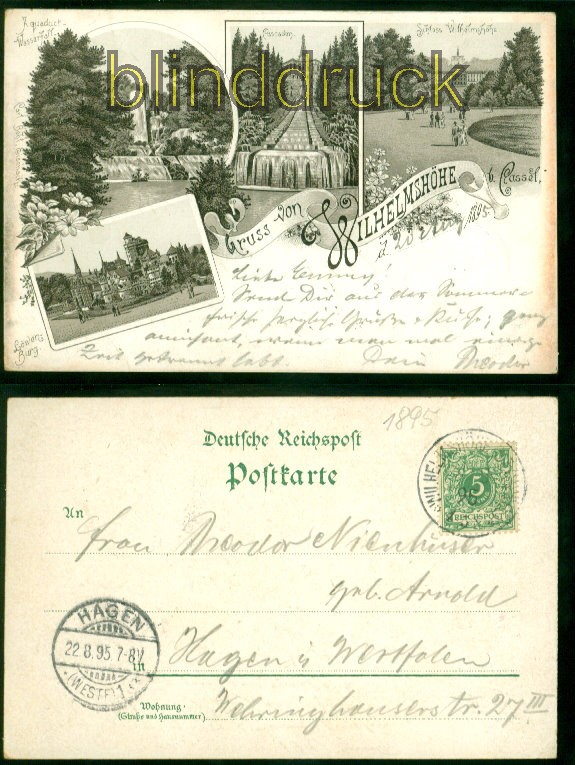 Aquaduct-
Wasserfall
blinddruck
Cascaden
Schloss Wilhelmshöhe
Gruss von WILHELMSHÖHE b. Cassel,
d. 20 Aug 1895.
Löwen-
Burg
Liebe Emmy!
Send Dir aus der Sommer-
frische herzliche Grüße & Küsse; ganz
amüsant, wenn man mal einige
Zeit getrennt lebt. Dein Theodor
1895
Deutsche Reichspost
Postkarte
WILHELMSHÖHE
5
REICHSPOST
An
Frau Theodor Nienhüser
geb. Arnold
HAGEN
22.8.95 7-8V
(WESTF) 1
in Hagen i Westfalen
Wohnung
(Straße und Hausnummer)
Wehringhauserstr. 27 III